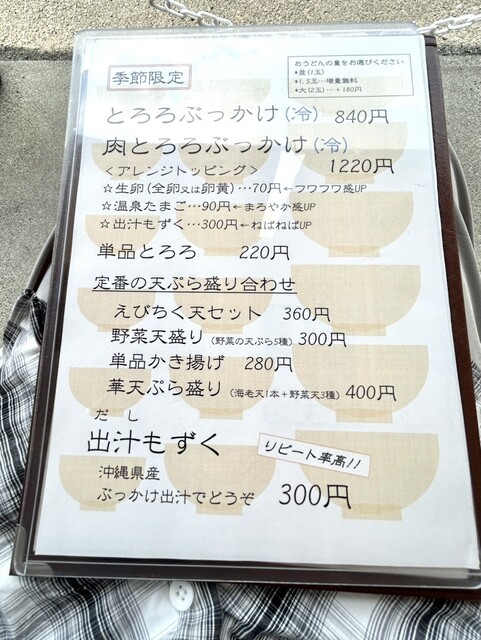 季節限定
おうどんの量をお選びください
*並(1玉)
*1.5玉…増量無料
*大(2玉)…+180円
とろろぶっかけ(冷) 840円
肉とろろぶっかけ(冷)
1220円
<アレンジトッピング>
☆生卵(全卵又は卵黄)…70円←フワフワ感UP
☆温泉たまご…90円←まろやか感UP
☆出汁もずく…300円←ねばねばUP
単品とろろ 220円
定番の天ぷら盛り合わせ
えびちく天セット 360円
野菜天盛り(野菜の天ぷら5種) 300円
単品かき揚げ 280円
華天ぷら盛り(海老天1本+野菜天3種) 400円
だし
出汁もずく
リピート率高!!
沖縄県産
ぶっかけ出汁でどうぞ 300円